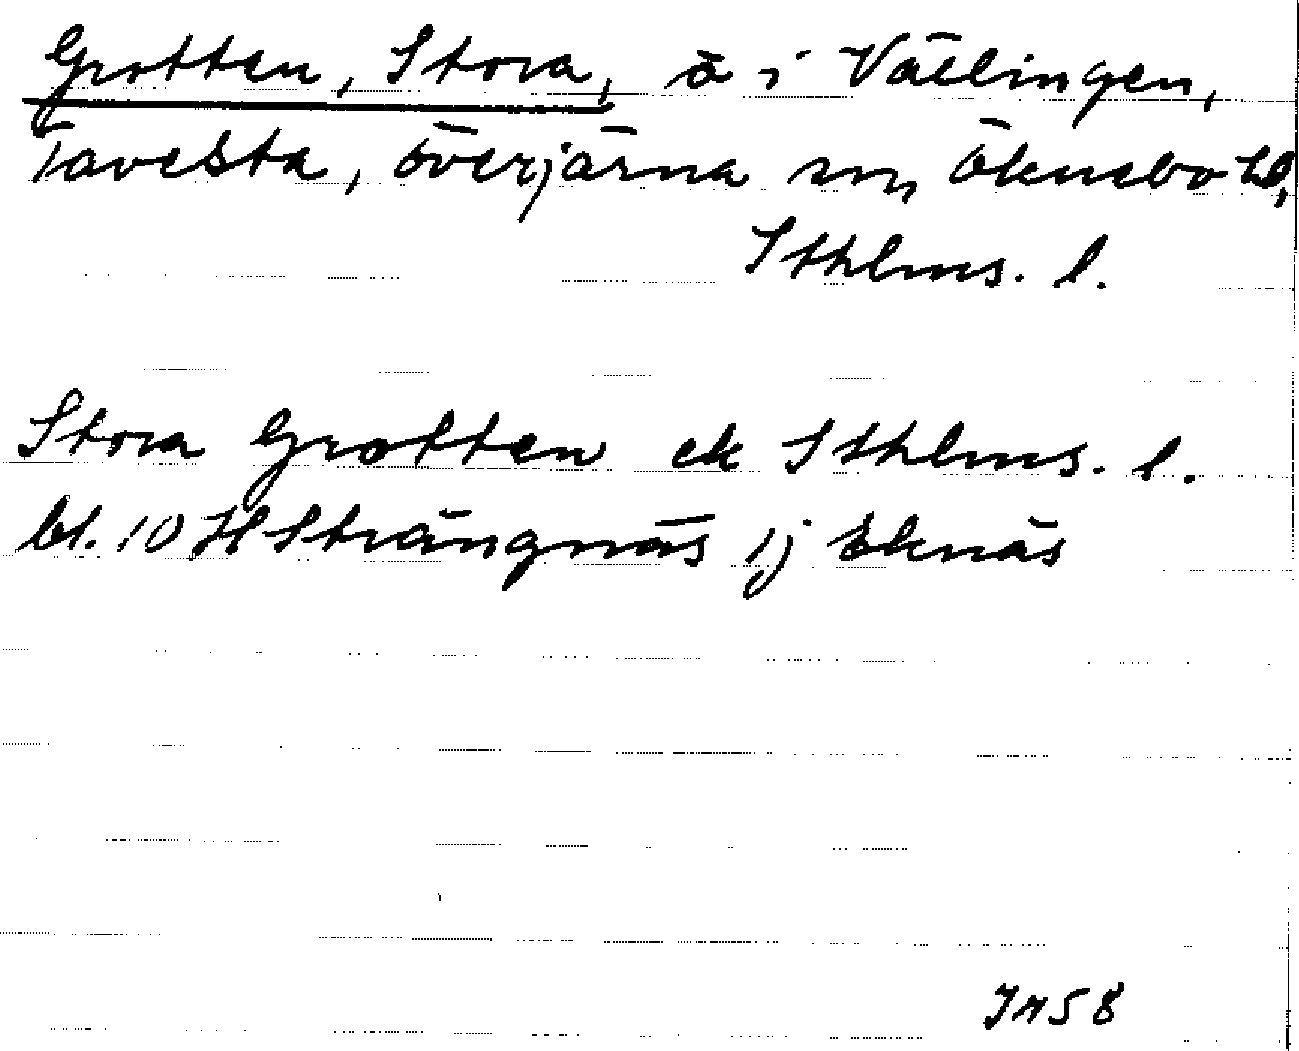 Grotten, Stora, ö i Vällingen,
Tavesta, överjärna sn, Öknebo hd,
Sthlms. l.
Stora Grotten ek Sthlms. l.
bl. 10 H Strängnäs ij Eknäs